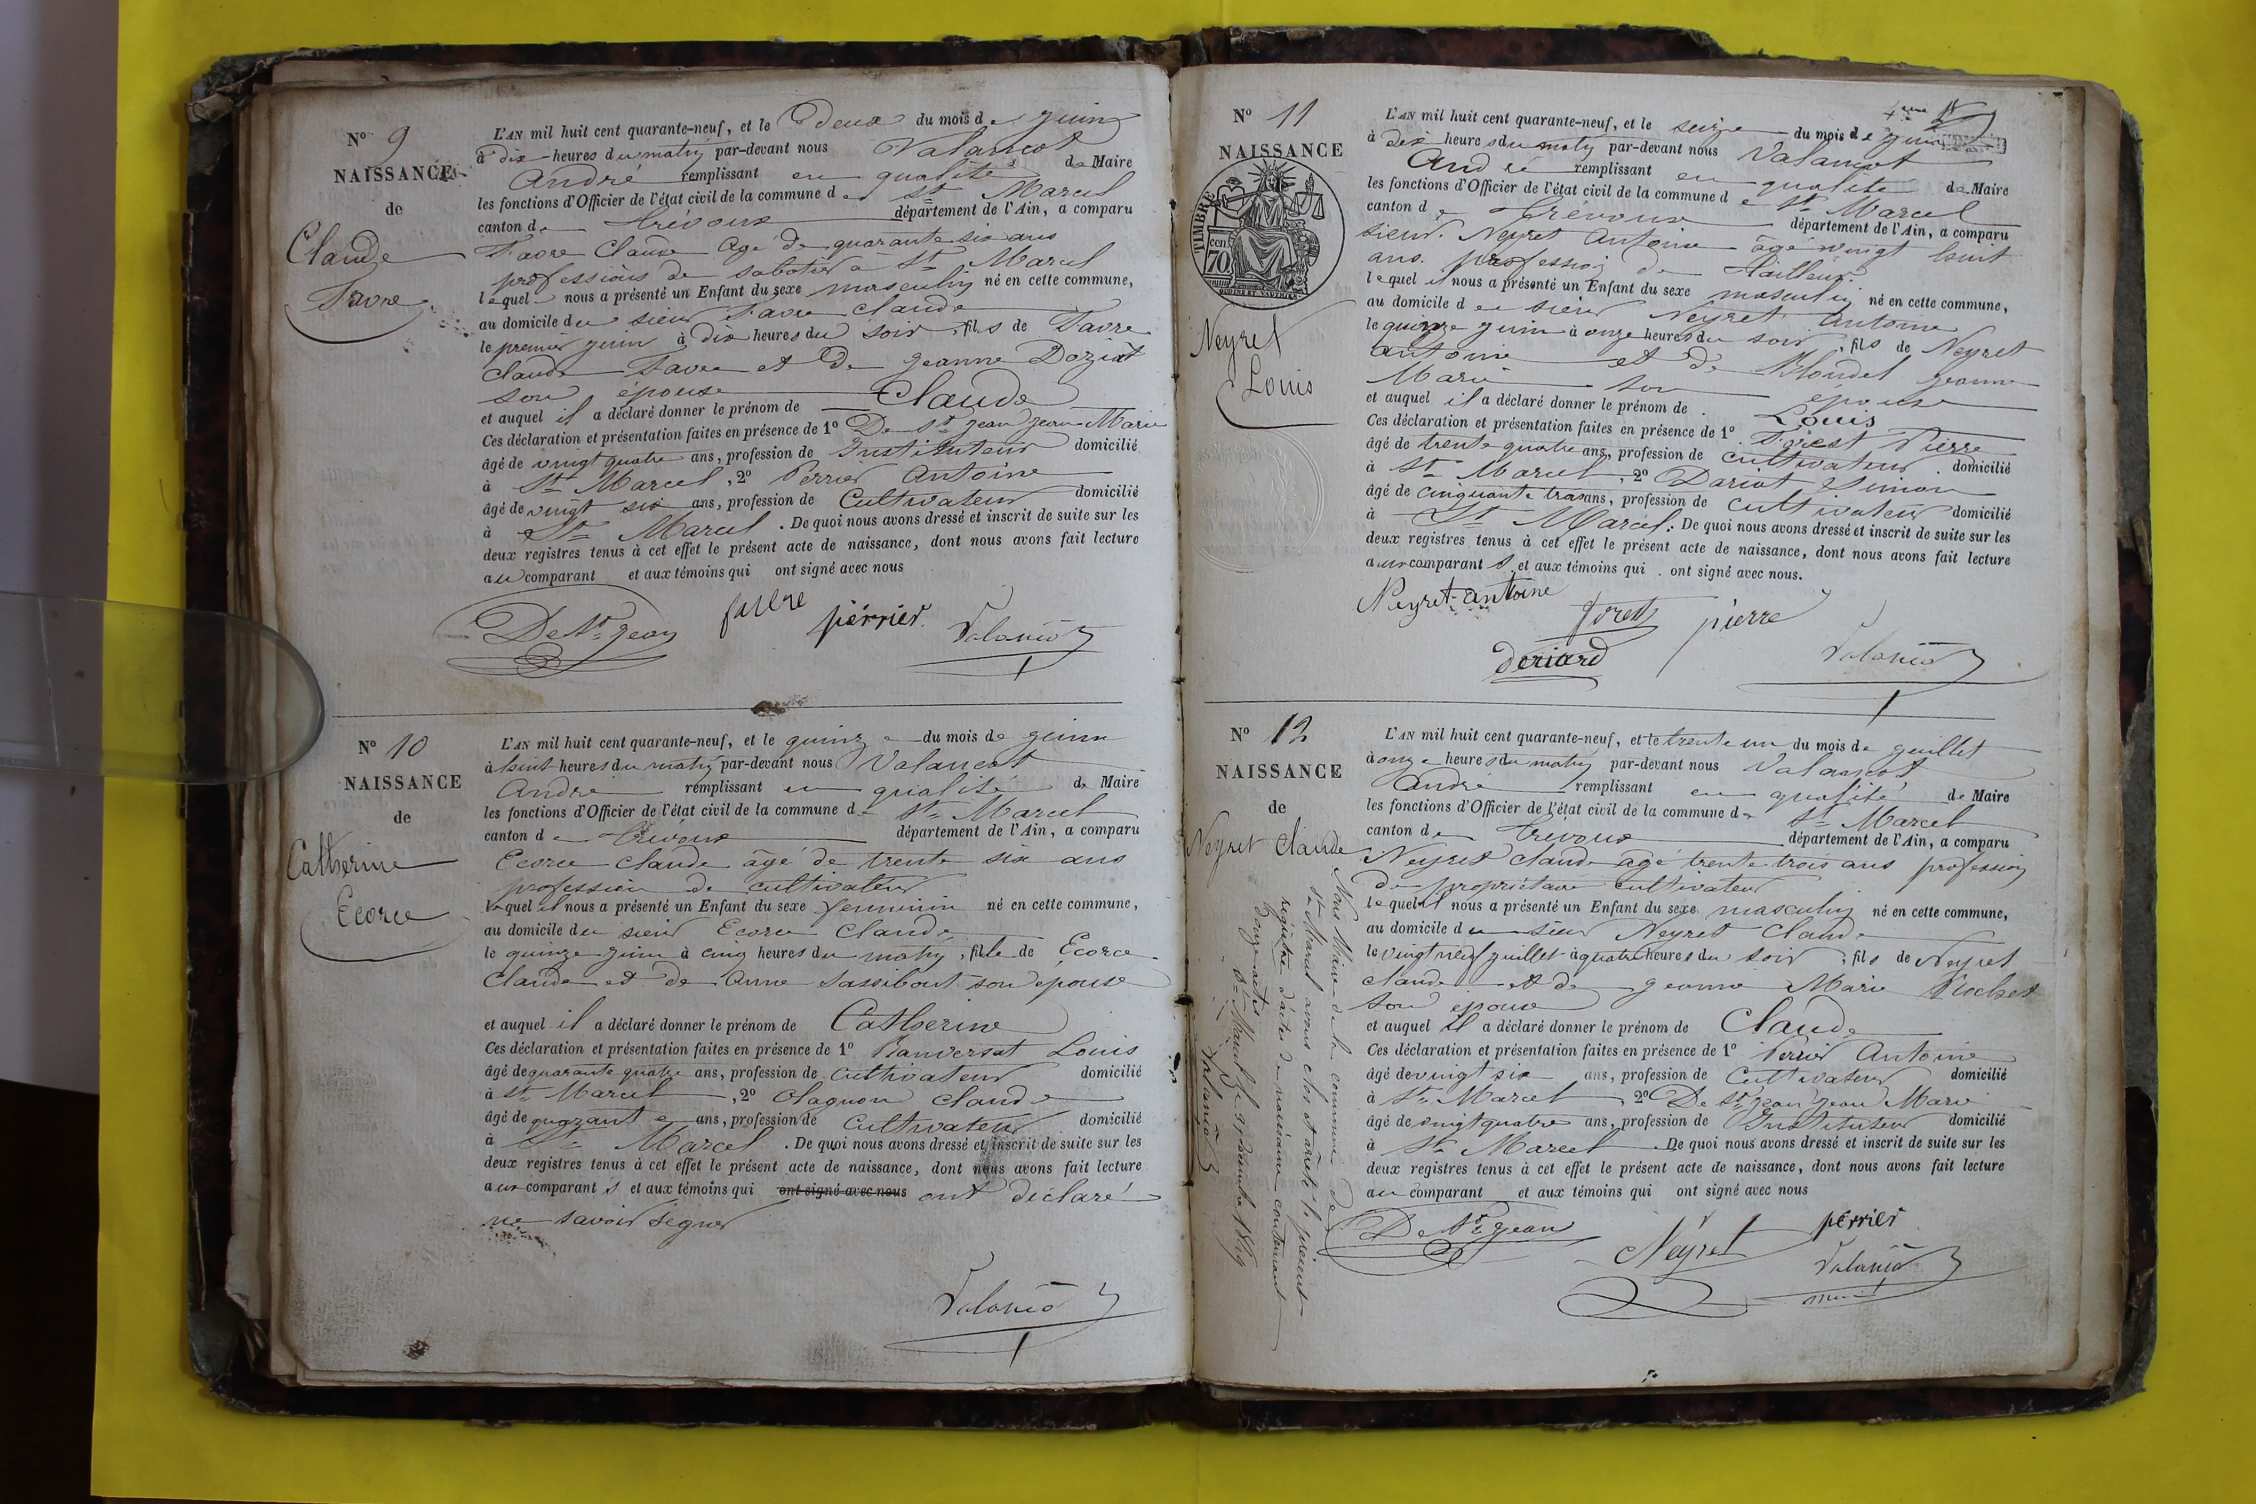 N° 9
NAISSANCE
de
Claude
Favre
L'AN mil huit cent quarante-neuf, et le deux du mois de guin
à dix heures du matin par-devant nous Valancot
André remplissant en qualité de Maire
les fonctions d'Officier de l'état civil de la commune de St Marcel
canton de Trévoux département de l'Ain, a comparu
Favre Claude agé de quarante six ans
professions de sabotier à St Marcel
lequel nous a présenté un Enfant du sexe masculin né en cette commune,
au domicile du sieur Favre Claude
le premier guin à dix heures du soir, fils de Favre
Claude Favre et de Jeanne Doziat
son épouse
et auquel il a déclaré donner le prénom de Claude
Ces déclaration et présentation faites en présence de 1° De St Jean Jean Marie
âgé de vingt quatre ans, profession de Instituteur domicilié
à St Marcel, 2° Perrier Antoine
âgé de vingt six ans, profession de Cultivateur domicilié
à St Marcel. De quoi nous avons dressé et inscrit de suite sur les
deux registres tenus à cet effet le présent acte de naissance, dont nous avons fait lecture
au comparant et aux témoins qui ont signé avec nous
De St Jean favre périer Valancot
N° 10
NAISSANCE
de
Catherine
Ecorce
L'AN mil huit cent quarante-neuf, et le quinze du mois de guin
à huit heures du matin par-devant nous Valancot
André remplissant en qualité de Maire
les fonctions d'Officier de l'état civil de la commune de St Marcel
canton de Trévoux département de l'Ain, a comparu
Ecorce Claude âgé de trente six ans
profession de cultivateur
lequel il nous a présenté un Enfant du sexe femminin né en cette commune,
au domicile du sieur Ecorce Claude
le quinze guin à cinq heures du matin, fille de Ecorce
Claude et de Anne Sassibout son épouse
et auquel il a déclaré donner le prénom de Catherine
Ces déclaration et présentation faites en présence de 1° Manversat Louis
âgé de quarante quatre ans, profession de cultivateur domicilié
à St Marcel, 2° Clagnon Claude
âgé de quarante ans, profession de Cultivateur domicilié
à St Marcel. De quoi nous avons dressé et inscrit de suite sur les
deux registres tenus à cet effet le présent acte de naissance, dont nous avons fait lecture
aux comparants et aux témoins qui ont signé avec nous ont déclaré
ne savoir signer
Valancot
N° 11
NAISSANCE
TIMBRE
70 cen
Neyret
Louis
L'AN mil huit cent quarante-neuf, et le seize du mois de guin
à dix heures du matin par-devant nous Valancot
André remplissant en qualité de Maire
les fonctions d'Officier de l'état civil de la commune de St Marcel
canton de Trévoux département de l'Ain, a comparu
sieur Neyret Antoine âgé vingt huit
ans profession de Tailleur
lequel il nous a présenté un Enfant du sexe masculin né en cette commune,
au domicile du sieur Neyret Antoine
le quinze guin à onze heures du soir, fils de Neyret
Antoine et de Blondel Jeanne
Marie son épouse
et auquel il a déclaré donner le prénom de Louis
Ces déclaration et présentation faites en présence de 1° Forest Pierre
âgé de trente quatre ans, profession de cultivateur domicilié
à St Marcel, 2° Dariat Simon
âgé de cinquante trois ans, profession de cultivateur domicilié
à St Marcel. De quoi nous avons dressé et inscrit de suite sur les
deux registres tenus à cet effet le présent acte de naissance, dont nous avons fait lecture
aux comparants et aux témoins qui ont signé avec nous.
Neyret antoine
forest pierre
deriard Valancot
N° 12
NAISSANCE
de
Neyret Claude
L'AN mil huit cent quarante-neuf, et le trente un du mois de guillet
à onze heures du matin par-devant nous Valancot
André remplissant en qualité de Maire
les fonctions d'Officier de l'état civil de la commune de St Marcel
canton de Trévoux département de l'Ain, a comparu
Neyret Claude agé trente trois ans profession
de propriétaire cultivateur
lequel il nous a présenté un Enfant du sexe masculin né en cette commune,
au domicile du sieur Neyret Claude
le vingt neuf guillet à quatre heures du soir, fils de Neyret
Claude et de Jeanne Marie Rochet
son épouse
et auquel il a déclaré donner le prénom de Claude
Ces déclaration et présentation faites en présence de 1° Perrier Antoine
âgé de vingt six ans, profession de Cultivateur domicilié
à St Marcel, 2° De St Jean Jean Marie
âgé de vingt quatre ans, profession de Instituteur domicilié
à St Marcel. De quoi nous avons dressé et inscrit de suite sur les
deux registres tenus à cet effet le présent acte de naissance, dont nous avons fait lecture
au comparant et aux témoins qui ont signé avec nous
De St Jean Neyret périer
Valancot
Nous Maire de la commune de
St Marcel avons clos et arrêté le présent
registre d'actes de naissance contenant
douze actes
St Marcel le 31 décembre 1849
Valancot